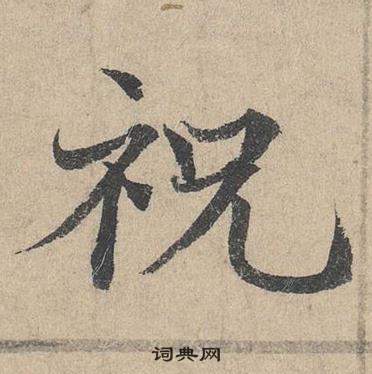 祝
词典网